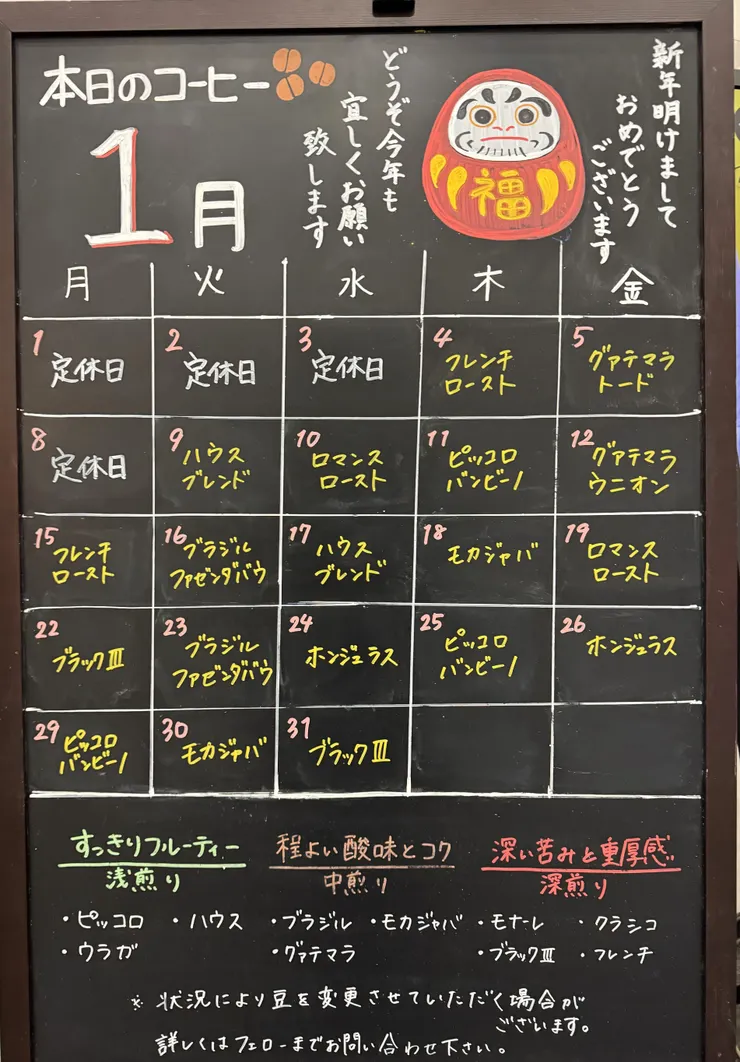 本日のコーヒー
1月
新年明けまして
おめでとう
ございます
どうぞ今年も
宜しくお願い
致します
福
月 火 水 木 金
1 定休日
2 定休日
3 定休日
4 フレンチ
ロースト
5 グァテマラ
トード
8 定休日
9 ハウス
ブレンド
10 ロマンス
ロースト
11 ピッコロ
バンビーノ
12 グァテマラ
ウニオン
15 フレンチ
ロースト
16 ブラジル
ファゼンダバウ
17 ハウス
ブレンド
18 モカジャバ
19 ロマンス
ロースト
22 ブラックⅢ
23 ブラジル
ファゼンダバウ
24 ホンジュラス
25 ピッコロ
バンビーノ
26 ホンジュラス
29 ピッコロ
バンビーノ
30 モカジャバ
31 ブラックⅢ
すっきりフルーティー
浅煎り
・ピッコロ ・ハウス
・ウラガ
程よい酸味とコク
中煎り
・ブラジル ・モカジャバ
・グァテマラ
深い苦みと重厚感
深煎り
・モナーレ ・クラシコ
・ブラックⅢ ・フレンチ
※ 状況により豆を変更させていただく場合が
ございます。
詳しくはフェローまでお問い合わせ下さい。